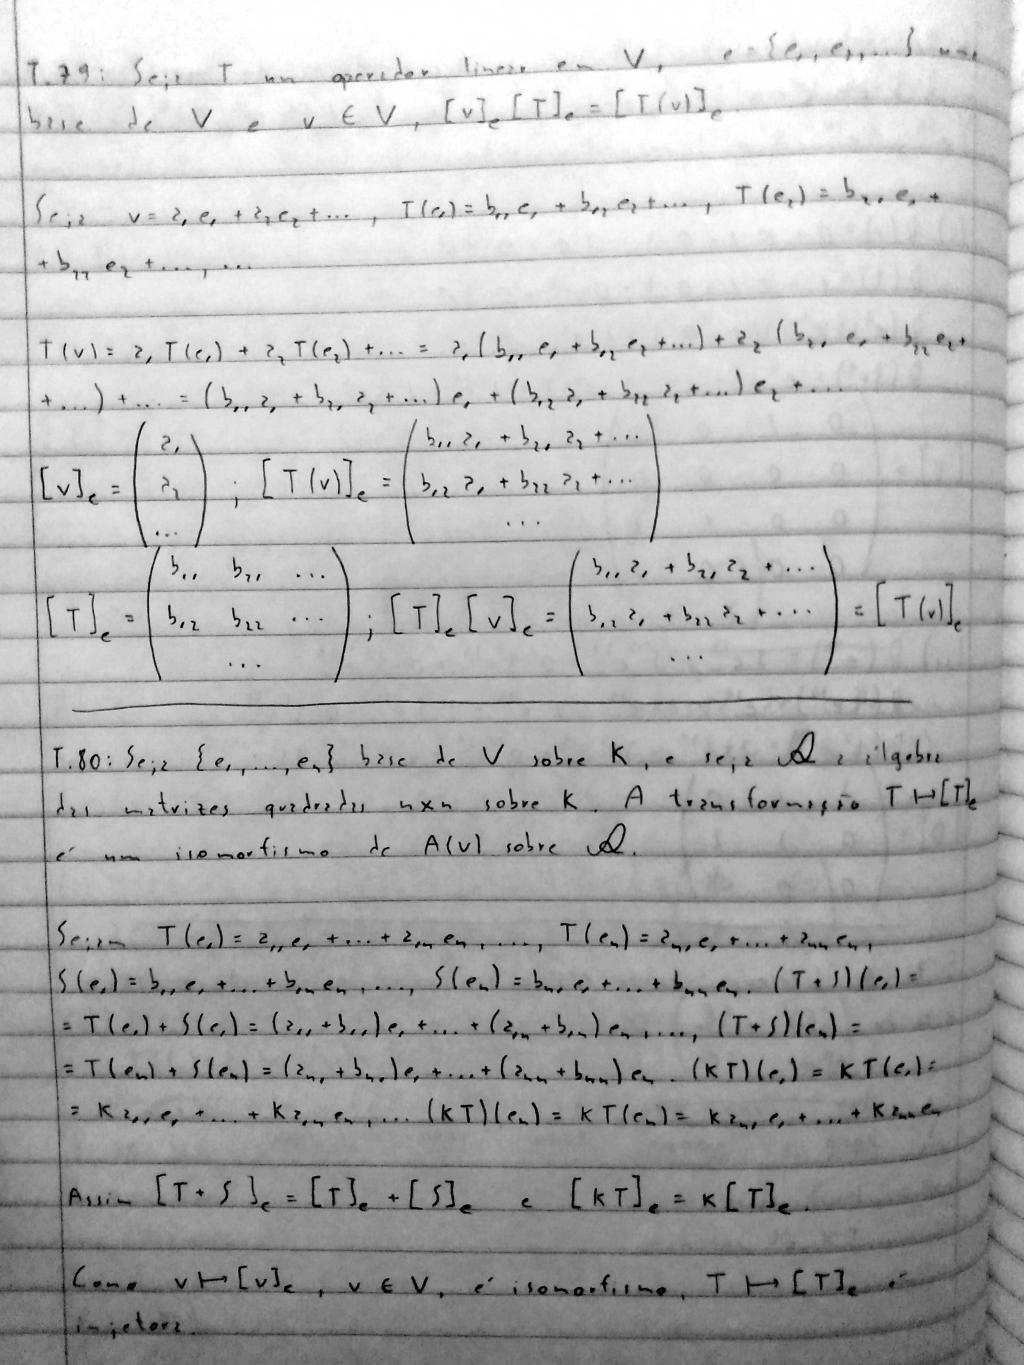 T.79: Seja T um operador linear em V, e = {e₁, e₂, ...} uma
base de V e v ∈ V, [v]ₑ [T]ₑ = [T(v)]ₑ.
Seja v = a₁e₁ + a₂e₂ + ..., T(e₁) = b₁₁e₁ + b₁₂e₂ + ..., T(e₂) = b₂₁e₁ +
+ b₂₂e₂ + ..., ...
T(v) = a₁T(e₁) + a₂T(e₂) + ... = a₁(b₁₁e₁ + b₁₂e₂ + ...) + a₂(b₂₁e₁ + b₂₂e₂ +
+ ...) + ... = (b₁₁a₁ + b₂₁a₂ + ...)e₁ + (b₁₂a₁ + b₂₂a₂ + ...)e₂ + ...
[v]ₑ = (a₁ a₂ ...) ; [T(v)]ₑ = (b₁₁a₁ + b₂₁a₂ + ... b₁₂a₁ + b₂₂a₂ + ... ...)
[T]ₑ = (b₁₁ b₂₁ ... b₁₂ b₂₂ ... ...) ; [T]ₑ[v]ₑ = (b₁₁a₁ + b₂₁a₂ + ... b₁₂a₁ + b₂₂a₂ + ... ...) = [T(v)]ₑ
T.80: Seja {e₁, ..., eₙ} base de V sobre K, e seja 𝒜 a álgebra
das matrizes quadradas nxn sobre K. A transformação T ↦ [T]ₑ
é um isomorfismo de A(V) sobre 𝒜.
Sejam T(e₁) = a₁₁e₁ + ... + a₁ₙeₙ, ..., T(eₙ) = aₙ₁e₁ + ... + aₙₙeₙ,
S(e₁) = b₁₁e₁ + ... + b₁ₙeₙ, ..., S(eₙ) = bₙ₁e₁ + ... + bₙₙeₙ. (T + S)(e₁) =
= T(e₁) + S(e₁) = (a₁₁ + b₁₁)e₁ + ... + (a₁ₙ + b₁ₙ)eₙ, ..., (T + S)(eₙ) =
= T(eₙ) + S(eₙ) = (aₙ₁ + bₙ₁)e₁ + ... + (aₙₙ + bₙₙ)eₙ. (kT)(e₁) = kT(e₁) =
= ka₁₁e₁ + ... + ka₁ₙeₙ, ... (kT)(eₙ) = kT(eₙ) = kaₙ₁e₁ + ... + kaₙₙeₙ
Assim [T + S]ₑ = [T]ₑ + [S]ₑ e [kT]ₑ = k[T]ₑ.
Como v ↦ [v]ₑ, v ∈ V, é isomorfismo, T ↦ [T]ₑ é
injetora.